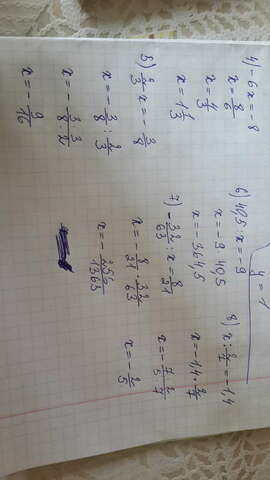 4) -6x = -8
x = 8/6
x = 4/3
x = 1 1/3
5) 2/3 x = - 3/8
x = - 3/8 : 2/3
x = - 3/8 · 3/2
x = - 9/16
6) 40,5 · x = -9
x = -9 · 40,5
x = -364,5
7) - 32/63 : x = 8/21
x = - 8/21 · 32/63
x = - 256/1363
= 1
8) x : 2/7 = -1,4
x = -1,4 · 2/7
x = - 7/5 · 2/7
x = - 2/5